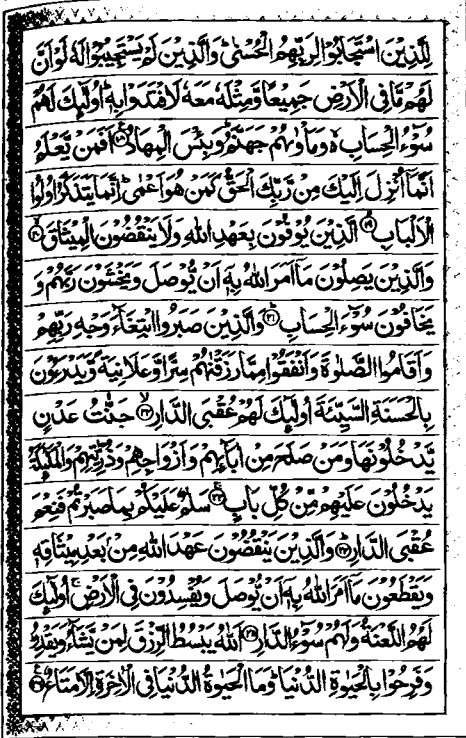 لِلَّذِيْنَ اسْتَجَابُوْا لِرَبِّهِمُ الْحُسْنٰىؕ وَالَّذِيْنَ لَمْ يَسْتَجِيْبُوْا لَهٗ لَوْ اَنَّ
لَهُمْ مَّا فِى الْاَرْضِ جَمِيْعًا وَّمِثْلَهٗ مَعَهٗ لَافْتَدَوْا بِهٖؕ اُولٰٓئِكَ لَهُمْ
سُوْٓءُ الْحِسَابِ ۙ وَمَاْوٰىهُمْ جَهَنَّمُؕ وَبِئْسَ الْمِهَادُ ۟﴿۱۸﴾ اَفَمَنْ يَّعْلَمُ
اَنَّمَاۤ اُنْزِلَ اِلَيْكَ مِنْ رَّبِّكَ الْحَقُّ كَمَنْ هُوَ اَعْمٰىؕ اِنَّمَا يَتَذَكَّرُ اُولُوا
الْاَلْبَابِ ﴿۱۹﴾ الَّذِيْنَ يُوْفُوْنَ بِعَهْدِ اللّٰهِ وَلَا يَنْقُضُوْنَ الْمِيْثَاقَ ﴿۲۰﴾
وَالَّذِيْنَ يَصِلُوْنَ مَاۤ اَمَرَ اللّٰهُ بِهٖۤ اَنْ يُّوْصَلَ وَيَخْشَوْنَ رَبَّهُمْ وَ
يَخَافُوْنَ سُوْٓءَ الْحِسَابِ ﴿۲۱﴾ وَالَّذِيْنَ صَبَرُوا ابْتِغَآءَ وَجْهِ رَبِّهِمْ
وَاَقَامُوا الصَّلٰوةَ وَاَنْفَقُوْا مِمَّا رَزَقْنٰهُمْ سِرًّا وَّعَلَانِيَةً وَّيَدْرَءُوْنَ
بِالْحَسَنَةِ السَّيِّئَةَ اُولٰٓئِكَ لَهُمْ عُقْبَى الدَّارِ ﴿۲۲﴾ جَنّٰتُ عَدْنٍ
يَّدْخُلُوْنَهَا وَمَنْ صَلَحَ مِنْ اٰبَآئِهِمْ وَاَزْوَاجِهِمْ وَذُرِّيّٰتِهِمْ وَالْمَلٰٓئِكَةُ
يَدْخُلُوْنَ عَلَيْهِمْ مِّنْ كُلِّ بَابٍ ﴿۲۳﴾ سَلٰمٌ عَلَيْكُمْ بِمَا صَبَرْتُمْ فَنِعْمَ
عُقْبَى الدَّارِ ﴿۲۴﴾ وَالَّذِيْنَ يَنْقُضُوْنَ عَهْدَ اللّٰهِ مِنْۢ بَعْدِ مِيْثَاقِهٖ
وَيَقْطَعُوْنَ مَاۤ اَمَرَ اللّٰهُ بِهٖۤ اَنْ يُّوْصَلَ وَيُفْسِدُوْنَ فِى الْاَرْضِ ۙ اُولٰٓئِكَ
لَهُمُ اللَّعْنَةُ وَلَهُمْ سُوْٓءُ الدَّارِ ﴿۲۵﴾ اَللّٰهُ يَبْسُطُ الرِّزْقَ لِمَنْ يَّشَآءُ وَيَقْدِرُؕ
وَفَرِحُوْا بِالْحَيٰوةِ الدُّنْيَاؕ وَمَا الْحَيٰوةُ الدُّنْيَا فِى الْاٰخِرَةِ اِلَّا مَتَاعٌ ﴿۲۶﴾